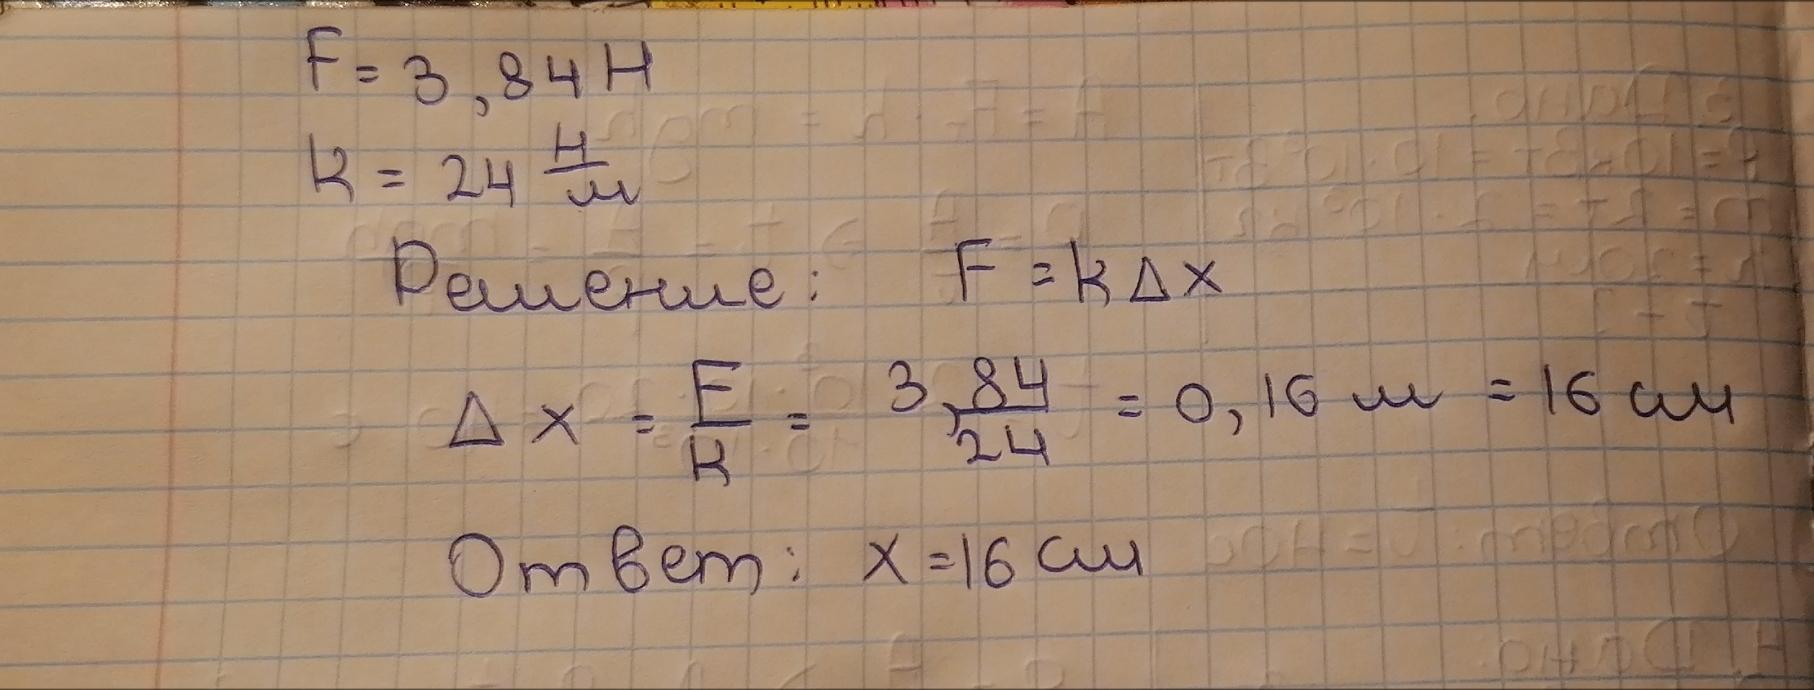 F = 3,84 Н
k = 24 Н/м
Решение: F = k Δ x
Δ x = F/k = 3,84/24 = 0,16 м = 16 см
Ответ: x = 16 см